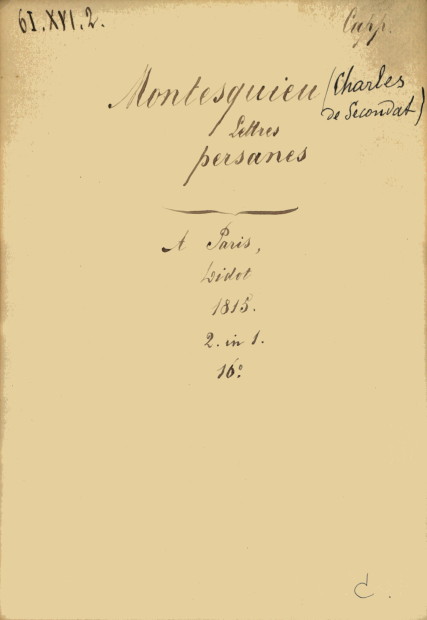 61.XVI.2.
Capp.
Montesquieu (Charles
de Secondat)
Lettres
persanes
A Paris,
Didot
1815.
2. in 1.
16º
C.